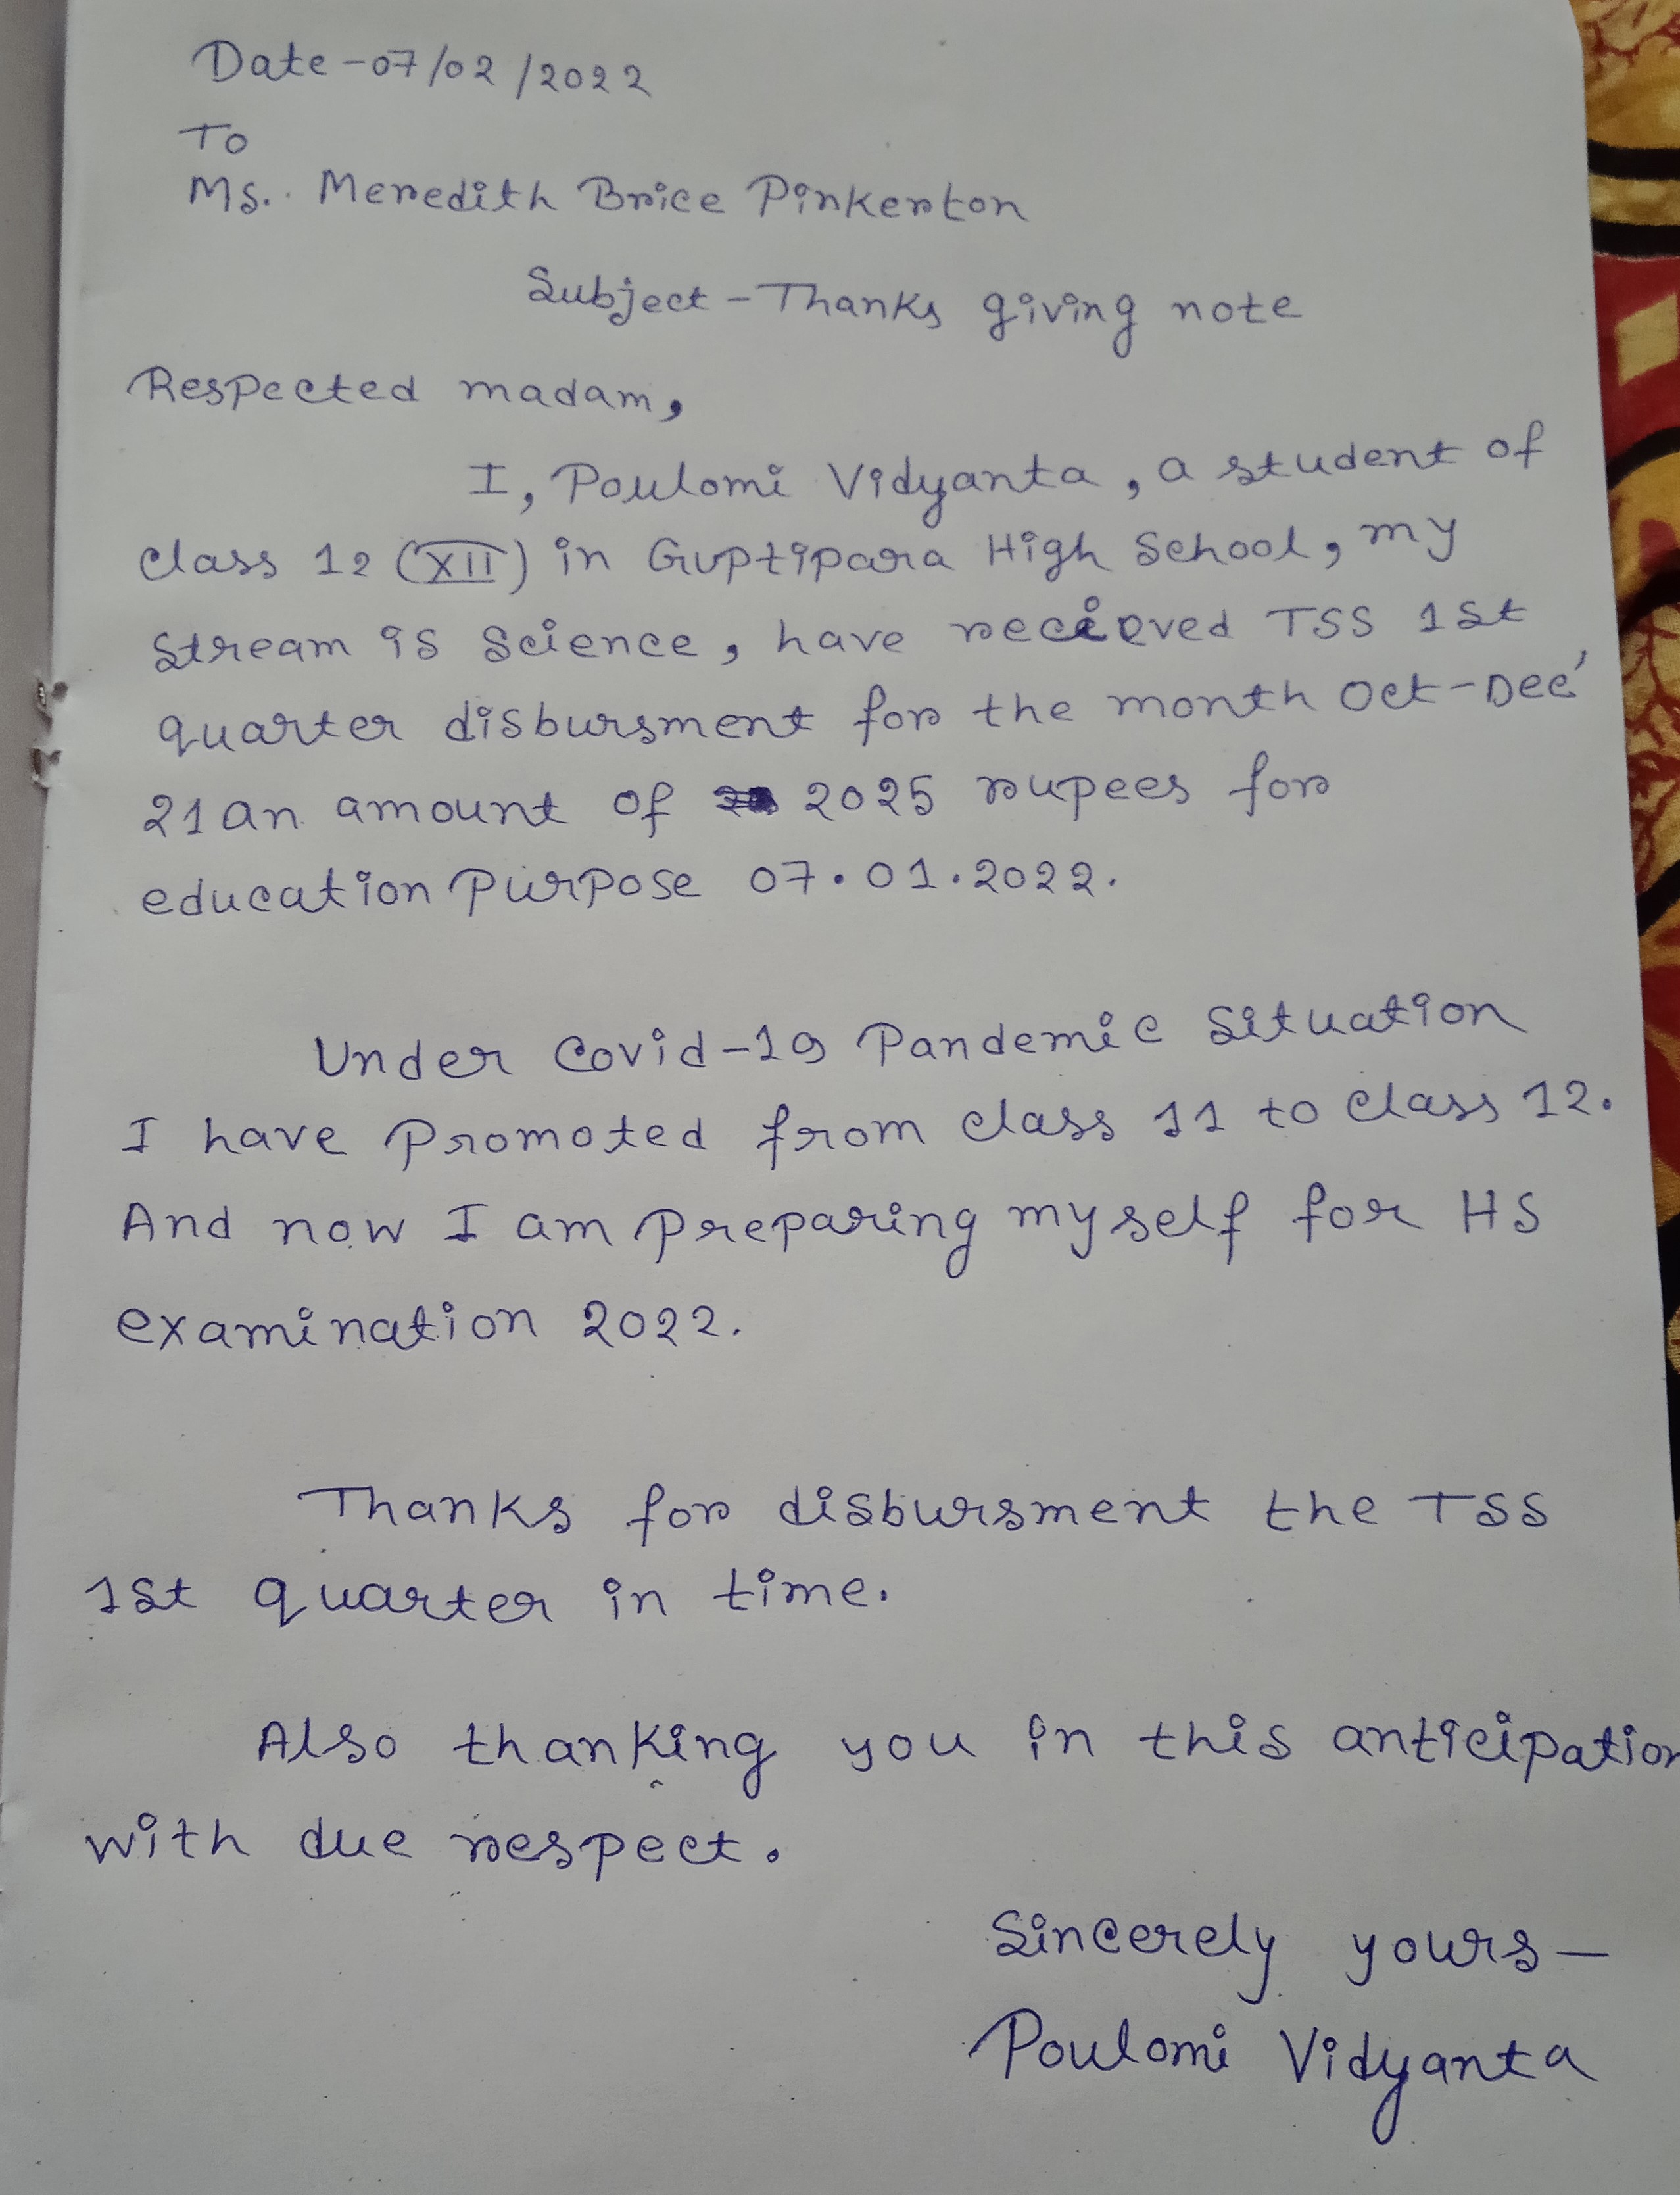 Date-07/02/2022
To
Ms. Meredith Brice Pinkerton
Subject-Thanks giving note
Respected madam,
I, Poulomi Vidyanta, a student of
class 12 (XII) in Guptipara High School, my
stream is Science, have recieved TSS 1st
quarter disbursment for the month Oct-Dec'
21 an amount of 2025 rupees for
education purpose 07.01.2022.
Under Covid-19 Pandemic Situation
I have Promoted from class 11 to class 12.
And now I am preparing myself for HS
examination 2022.
Thanks for disbursment the TSS
1st quarter in time.
Also thanking you in this anticipation
with due respect.
Sincerely yours-
Poulomi Vidyanta